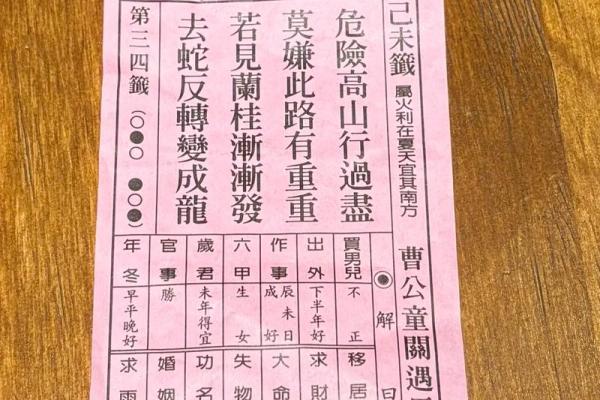 己未籤 屬火利在夏天宜其南方
曹公童關遇
解曰
危險高山行過盡
莫嫌此路有重重
若見蘭桂漸漸發
去蛇反轉變成龍
第三四籤 (〇●〇 ●〇〇)
買男兒 不正
出外 下半年好
作事 辰未日成好
六甲 生女
歲君 未年得宜
官事 勝
年冬 早平晚好
移居
求財
大命
失物
功名
婚姻
求雨